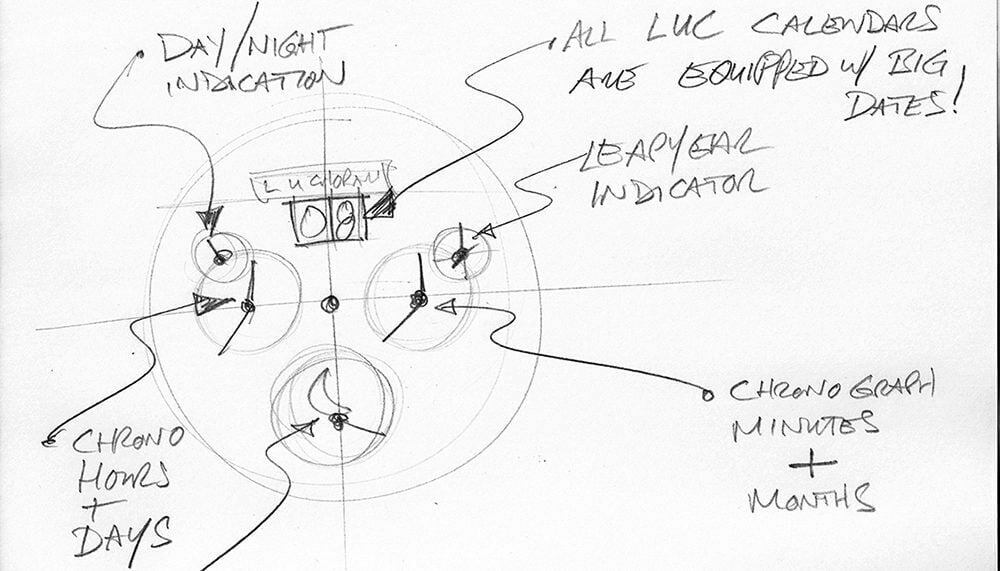 DAY/NIGHT
INDICATION
ALL LUC CALENDARS
ARE EQUIPPED W/ BIG
DATES!
LEAPYEAR
INDICATOR
LUC
08
CHRONO
HOURS
+
DAYS
CHRONOGRAPH
MINUTES
+
MONTHS